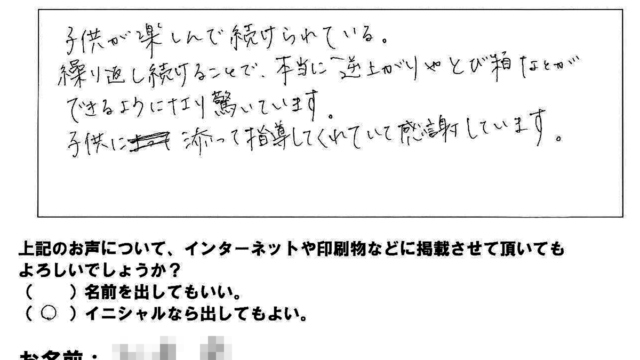 子供が楽しんで続けられている。
繰り返し続けることで、本当に逆上がりやとび箱などが
できるようになり驚いています。
子供に 添って指導してくれていて感謝しています。
上記のお声について、インターネットや印刷物などに掲載させて頂いても
よろしいでしょうか？
（　　）名前を出してもいい。
（ ○ ）イニシャルなら出してもよい。
お名前：